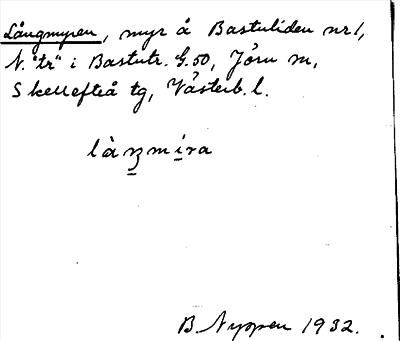 Långmyren, myr å Bastuliden nr 1,
N. "tr" i Bastutr. G.50, Jörn sn,
Skellefteå tg, Västerb. l.
B. Nyppen 1932.